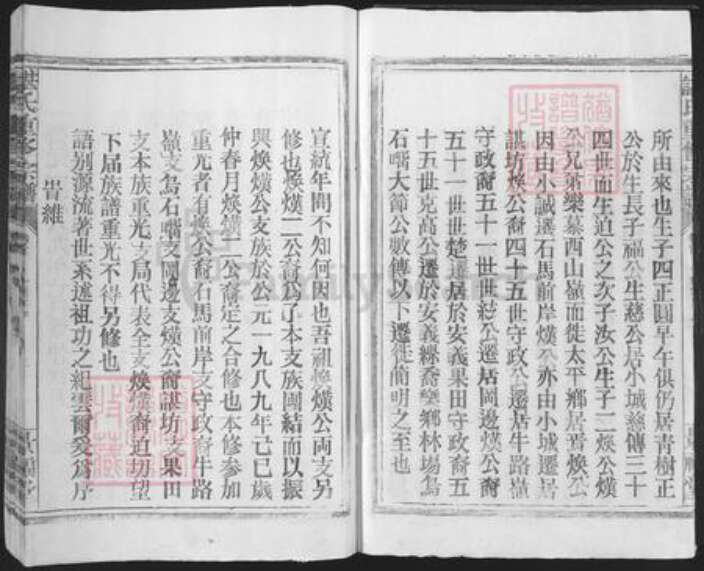 所由來也生子四正圓早午俱仍居青樹正
公於生長子福公生慈公居小城慈傳三十
四世而生迫公之次子汝公生子二煥公熯
公兄弟樂慕西山嶺而徙太平鄉居焉煥公
因由小誠遷石馬前岸熯公亦由小城遷居
諶坊煥公裔四十五世守政公遷居牛路嶺
守政裔五十一世世 公遷居岡邊熯公裔
五十一世世楚遷居於安義果田守政裔五
十五世克高公遷於安義綠喬壂鄉林場烏
石嘴大節公數傳以下遷徙簡明之至也
宣統年間不知何因也吾祖煥熯公両支另
修也煥熯二公裔為了本支族團結而以振
興煥熯公支族於公元一九八九年己巳歲
仲春月煥熯二公裔定之合修也本修參加
重光者有煥公裔石馬前岸支守政裔牛路
嶺支烏石嘴支岡邊支熯公裔諶坊支果田
支本族重光支局代表全支煥熯裔迫切望
下屆族譜重光不得另修也
語別源流著世系述祖功之紀雲爾爰為序
旹維